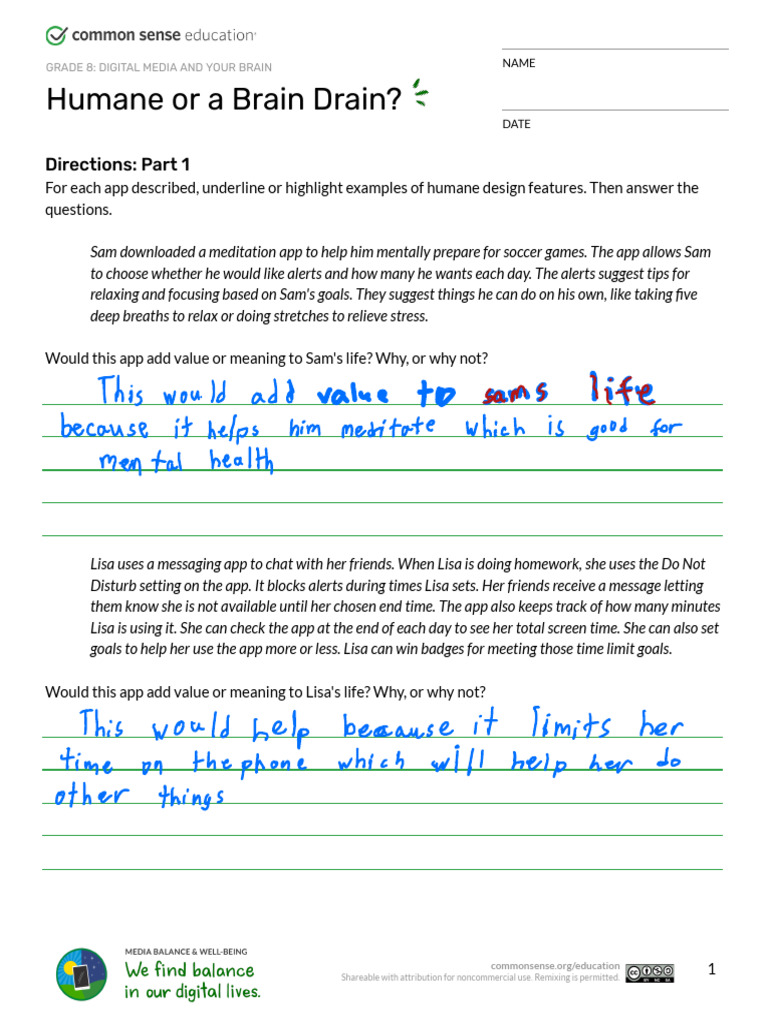 common sense education
NAME
GRADE 8: DIGITAL MEDIA AND YOUR BRAIN
Humane or a Brain Drain?
DATE
Directions: Part 1
For each app described, underline or highlight examples of humane design features. Then answer the
questions.
Sam downloaded a meditation app to help him mentally prepare for soccer games. The app allows Sam
to choose whether he would like alerts and how many he wants each day. The alerts suggest tips for
relaxing and focusing based on Sam's goals. They suggest things he can do on his own, like taking five
deep breaths to relax or doing stretches to relieve stress.
Would this app add value or meaning to Sam's life? Why, or why not?
This would add value to sams life
because it helps him meditate which is good for
mental health
Lisa uses a messaging app to chat with her friends. When Lisa is doing homework, she uses the Do Not
Disturb setting on the app. It blocks alerts during times Lisa sets. Her friends receive a message letting
them know she is not available until her chosen end time. The app also keeps track of how many minutes
Lisa is using it. She can check the app at the end of each day to see her total screen time. She can also set
goals to help her use the app more or less. Lisa can win badges for meeting those time limit goals.
Would this app add value or meaning to Lisa's life? Why, or why not?
This would help because it limits her
time on the phone which will help her do
other things
MEDIA BALANCE & WELL-BEING
We find balance
in our digital lives.
commonsense.org/education
Shareable with attribution for noncommercial use. Remixing is permitted.
1